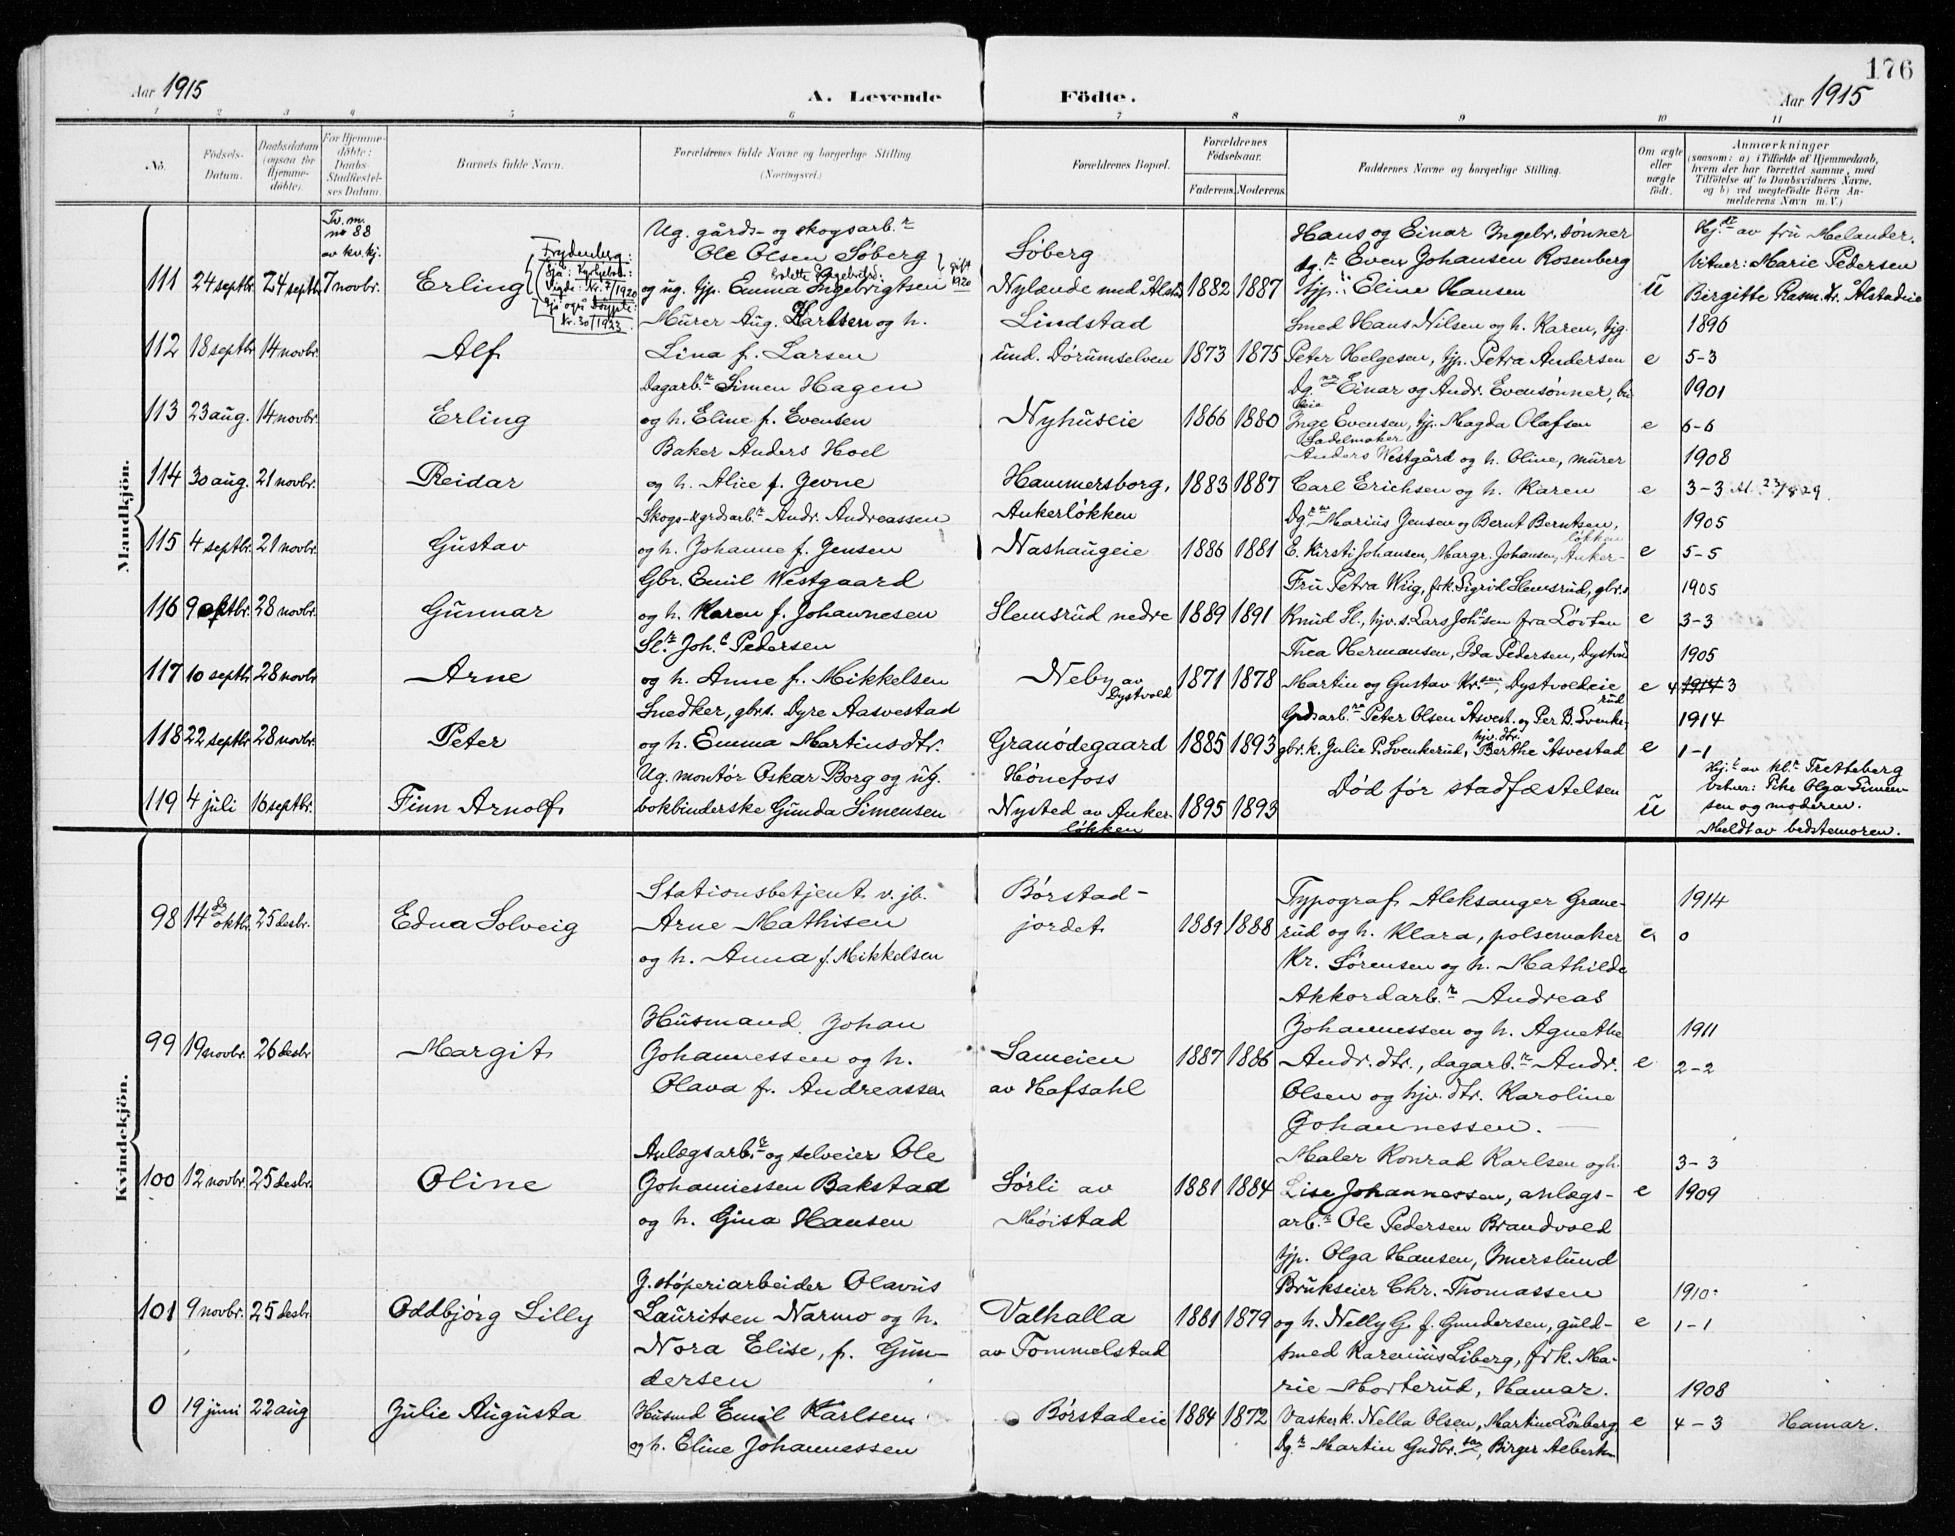 176
Aar 1915
A. Levende Födte.
Aar 1915
1 2 3 4 5 6 7 8 9 10 11
No.
Födsels-Datum.
Daabsdatum (ogsaa for Hjemme-döbte).
For Hjemme-döbte: Daabs-Stadfæstel-ses Datum.
Barnets fulde Navn.
Forældrenes fulde Navne og borgerlige Stilling (Næringsvei.)
Forældrenes Bopæl.
Forældrenes Födselsaar.
Faderens. Moderens.
Faddernes Navne og borgerlige Stilling.
Om ægte eller uægte födt.
Anmærkninger
(saasom: a) i Tilfælde af Hjemmedaab, hvem der har forrettet samme, med Tilföielse af to Daabsvidners Navne, og b) ved uægtefödte Börn An-melderens Navn m. V.)
Mandkjön.
Tv. m. nr 88 av kv. kj.
111 24 septbr. 24 septbr. 7 novbr. Erling
Frydenberg:
Nr. 7/1920
Nr. 30/1923.
Ug. gårds- og skogsarb.r
Ole Olsen Søberg
og ug. tjp. Emma Ingebrigtsen
gift 1920
Søberg
Nylænde und Ålstad 1882 1887
Hans og Einar Ingebr.sønner
dg.r Even Johansen Rosenberg
tjp. Eline Hansen
u
Hj.dt av fru Melander.
Vitner: Marie Pedersen
Birgitte Rasm.dr. Ålstadeie
112 18 septbr 14 novbr. Alf
Murer Aug. Karlsen og h.
Lina f. Larsen
Lindstad
und. Dørumselven 1873 1875
Smed Hans Nilsen og h. Karen, tjg.
Peter Helgesen, tjp. Petra Andersen
e
1896
5-3
113 23 aug. 14 novbr. Erling
Dagarb.r Simen Hagen
og h. Eline f. Evensen
Nyhuseie 1866 1880
Dg.ne Einar og Andr. Evensønner,
Inge Evensen, tjp. Magda Olafsen
e
1901
6-6
114 30 aug. 21 novbr. Reidar
Baker Anders Hoel
og h. Alice f. Jevne
Hammersborg, 1883 1887
Ankerløkken
Sadelmaker
Anders Westgård og h. Oline, murer
Carl Erichsen og h. Karen
e
1908
3-3
115 4 septbr. 21 novbr. Gustav
Skogs- & grdsarb.r Andr. Andreassen
og h. Johanne f. Jensen
Nashaugeie 1886 1881
Dg.rne Marius Jensen og Bernt Berntsen,
E. Kirsti Johansen, Margr. Johansen, Anker-
løkken
e
1905
5-5
116 9 septbr. 28 novbr. Gunnar
Gbr. Emil Westgaard
og h. Karen f. Johannesen
Slemsrud nedre 1889 1891
Fru Petra Wiig, frk. Sigrid Slemsrud, gbr.s
Knud Sl., hjv. s. Lars Joh.sen fra Løiten
e
1905
3-3
117 10 septbr 28 novbr. Arne
Sl.r Joh.s Pedersen
og h. Anne f. Mikkelsen
Neby av
Dystvold 1871 1878
Thea Hermansen, Ida Pedersen, Dystvold
Martin og Gustav Kr.sen, Dystvoldeie
e
1905
4 1914 3
118 22 septbr 28 novbr. Peter
Snedker, gbr.s. Dyre Aasvestad
og h. Emma Martinsdtr.
Granødegaard 1885 1893
Grdsarb.ne Peter Olsen Åsvest. og Per B. Svenke-
rud
gbr. k. Julie P. Svenkerud, hjv. dtr. Berthe Åsvestad
e
1914
1-1
119 4 juli 16 septbr. Finn Arnolf
Ug. montør Oskar Borg og ug.
bokbinderske Gunda Simensen
Hønefoss
Nysted av Anker-
løkken 1895 1893
Død før stadfæstelsen
u
Hj.t av kl.r Tretteberg
Vitner: Pike Olga Simen-
sen og moderen.
Meldt av bedstemoren.
Kvindekjön.
98 14 oktbr. 25 desbr. Edna Solveig
Stationsbetjent v. jb.
Arne Mathisen
og h. Anna f. Mikkelsen
Børstad-
jordet 1889 1888
Typograf Aleksanger Grane-
rud og h. Klara, pølsemaker
Kr. Sørensen og h. Mathilde
e
1914
0
99 19 novbr. 26 desbr Margit
Husmand Johan
Johannessen og h.
Olava f. Andreassen
Sameien
av Hafsahl 1887 1886
Akkordarb.r Andreas
Johannessen og h. Agnethe
Andr. dtr., dagarb.r Andr.
Olsen og hjv. dtr. Karoline
Johannessen.
e
1911
2-2
100 12 novbr. 25 desbr. Oline
Anlægsarb.r og selveier Ole
Johannessen Bakstad
og h. Gina Hansen
Sørli av
Møistad 1881 1884
Maler Konrad Karlsen og h.
Lise Johannessen, anlægs-
arb.r Ole Pedersen Brandvold
tjp. Olga Hansen, Imerslund
e
3-3
1909
101 9 novbr. 25 desbr. Oddbjørg Lilly
J. støperiarbeider Olavus
Lauritsen Narmo og h.
Nora Elise, f. Gun-
dersen
Valhalla
av Tommelstad 1881 1879
Brukseier Chr. Thomassen
og h. Nelly G. f. Gundersen, guld-
smed Karenius Liberg, frk. Ma-
rie Morterud, Hamar.
e
1910
1-1
0 19 juni 22 aug Julie Augusta
Husmd Emil Karlsen
og h. Eline Johannessen
Børstadeie 1884 1872
Vaskerk. Nella Olsen, Martine Lønberg,
Dg.r Martin Gudbr.sen, Birger Albertsen
e
1908
4-3 Hamar.